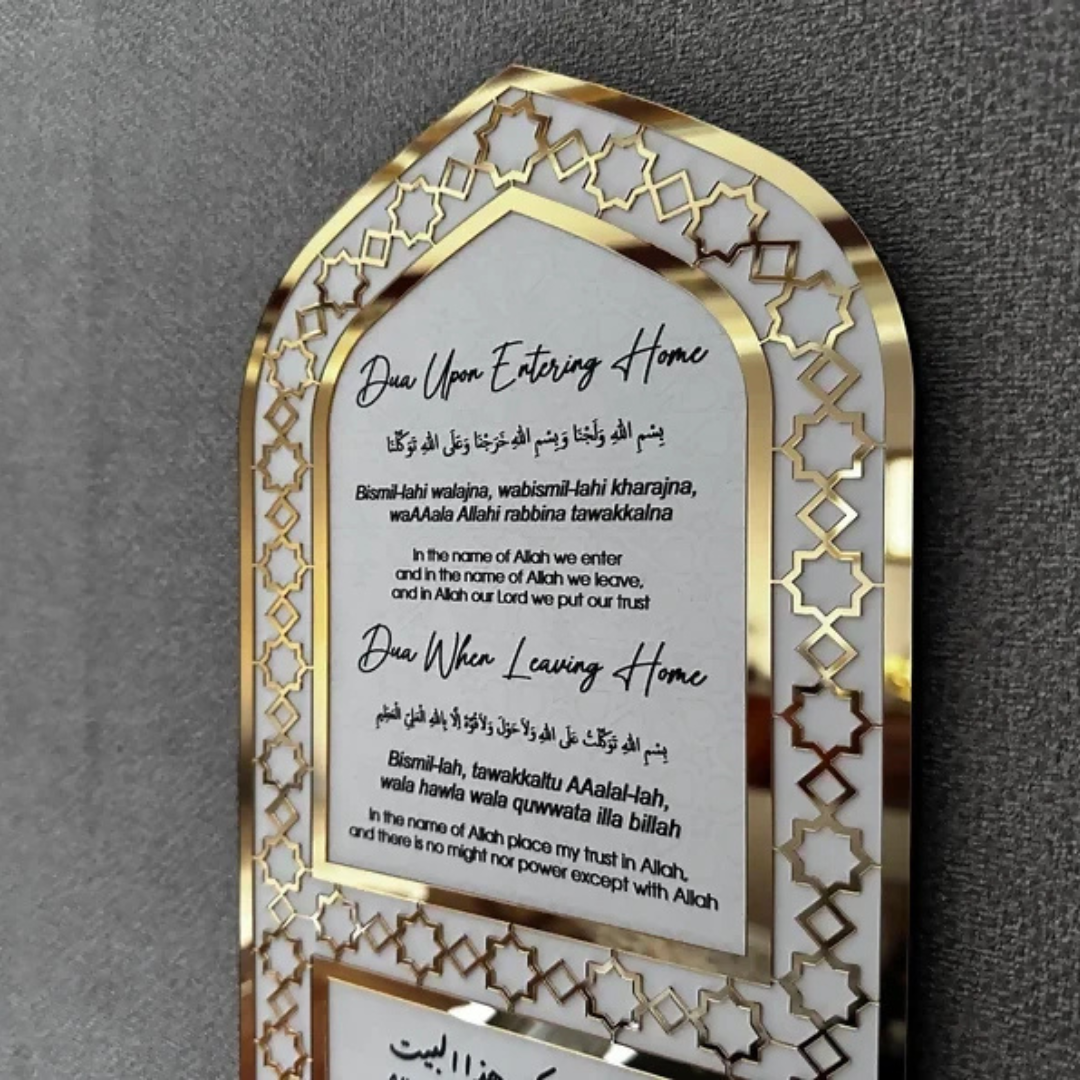 Dua Upon Entering Home
بِسْمِ اللهِ وَلَجْنَا وَبِسْمِ اللهِ خَرَجْنَا وَعَلَى اللهِ تَوَكَّلْنَا
Bismil-lahi walajna, wabismil-lahi kharajna,
waAAala Allahi rabbina tawakkalna
In the name of Allah we enter
and in the name of Allah we leave,
and in Allah our Lord we put our trust
Dua When Leaving Home
بِسْمِ اللهِ تَوَكَّلْتُ عَلَى اللهِ وَلاَحَوْلَ وَلاَقُوَّةَ اِلَّا بِاللهِ الْعَلِيِّ الْعَظِيْمِ
Bismil-lah, tawakkaltu AAalal-lah,
wala hawla wala quwwata illa billah
In the name of Allah place my trust in Allah,
and there is no might nor power except with Allah
هذا البيت